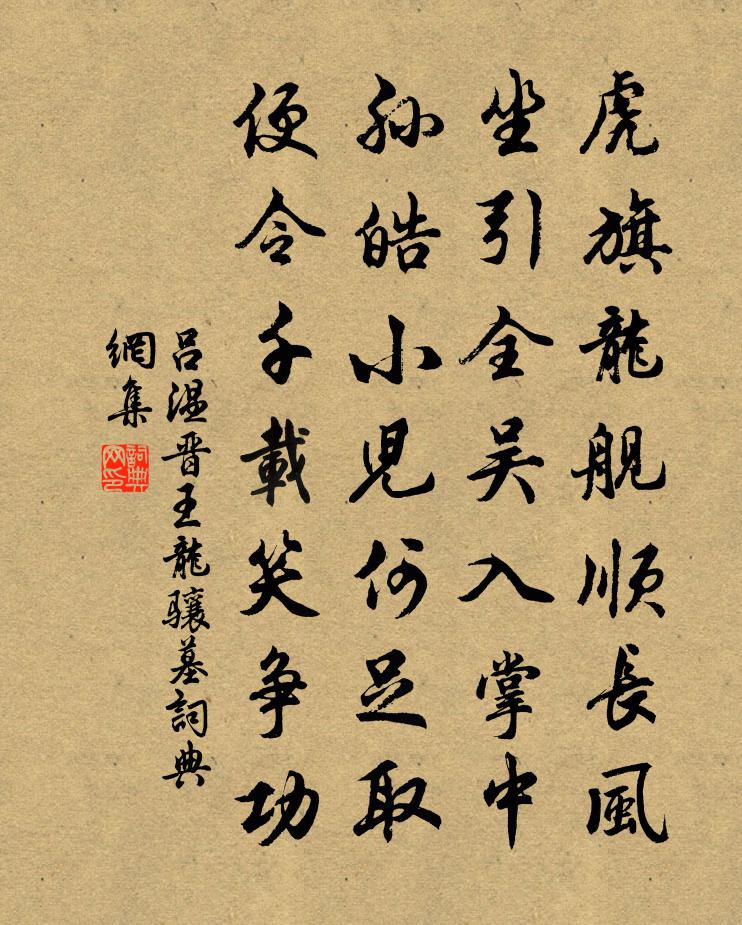 虎旗龍舰順長風
坐引全吴入掌中
孙皓小児何足取
便令千載笑争功
吕温晋王龍驤墓詞典
網集
詞典
网印